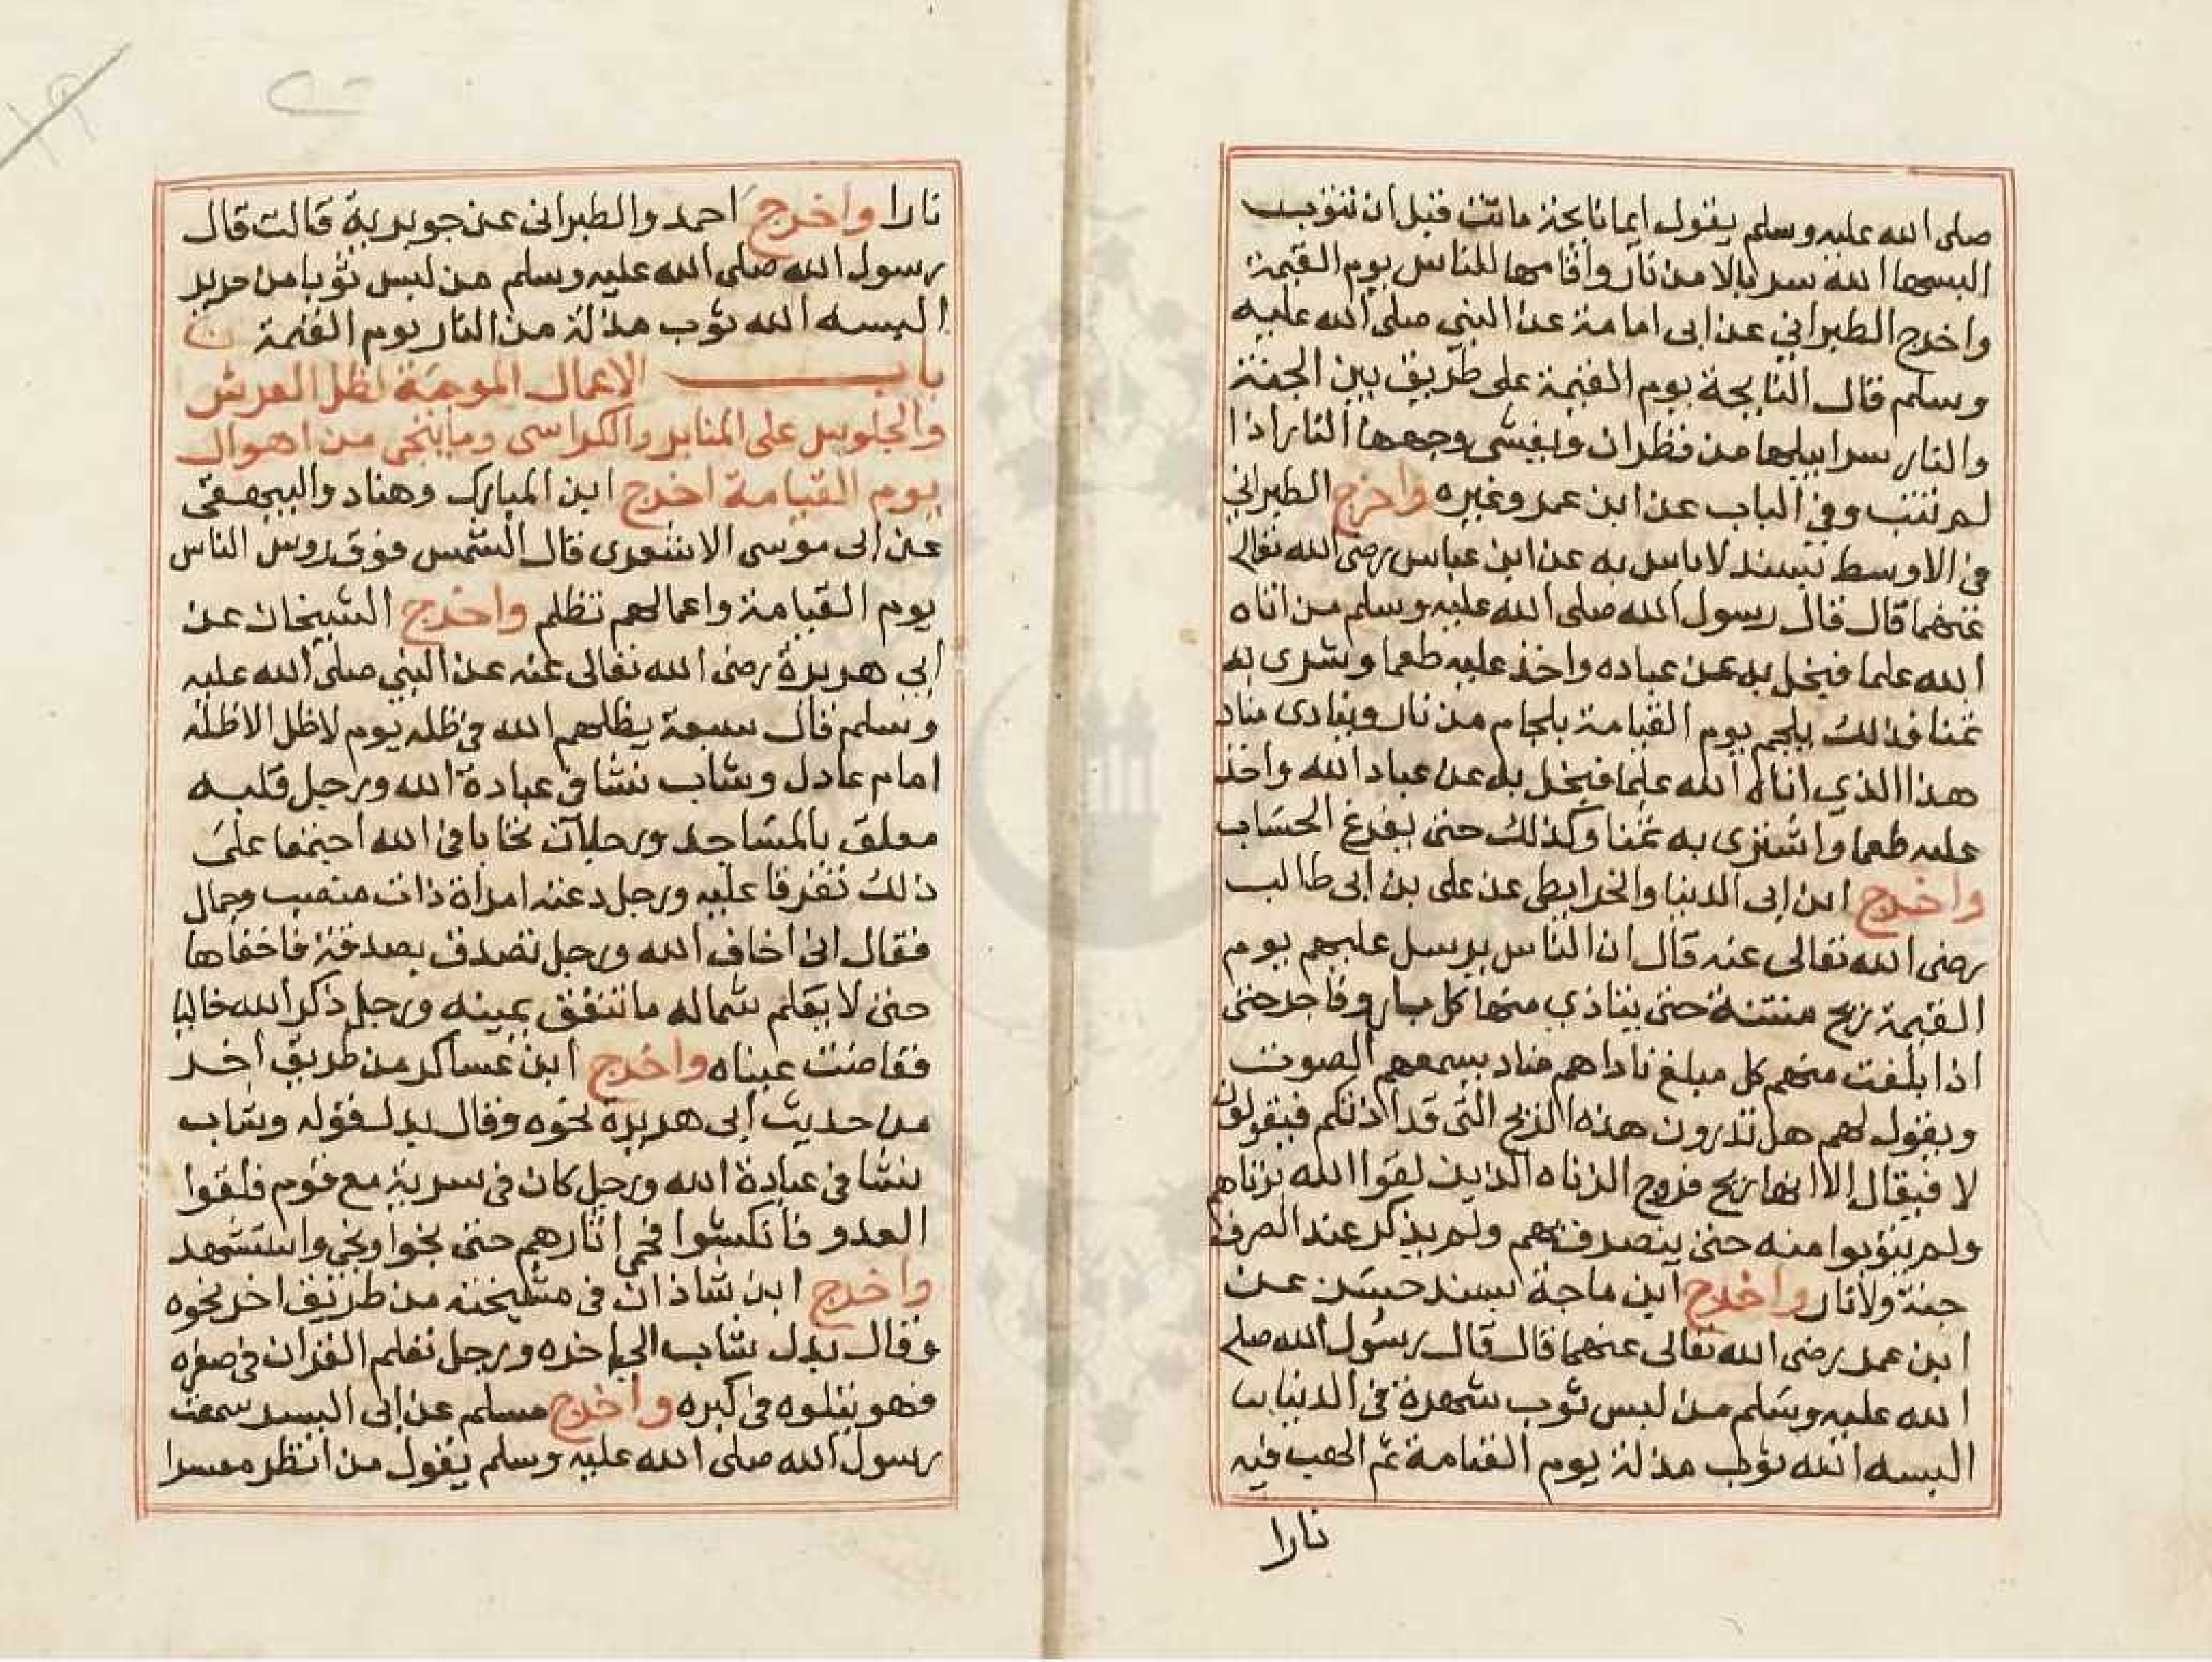 صلى الله عليه وسلم يقول ايما نايحة ماتت قبل ان تتوب
البسها الله سربالا من نار واقامها للناس يوم القيمة
واخرج الطبراني عن ابى امامة عن النبي صلى الله عليه
وسلم قال النايحة يوم القيمة على طريق بين الجنة
والنار سرابيلها من قطران ويغشى وجهها النار اذا
لم تتب وفي الباب عن ابن عمر وغيره واخرج الطبراني
في الاوسط بسند لاباس به عن ابن عباس رضى الله تعالى
عنهما قال قال رسول الله صلى الله عليه وسلم من اتاه
الله علما فبخل به عن عباده واخذ عليه طعما وشرى به
ثمنا فذلك يلجم يوم القيامة بلجام من نار وينادى مناد
هذا الذي اتاه الله علما فبخل به عن عباد الله واخذ
عليه طعما واشترى به ثمنا وكذلك حتى يفرغ الحساب
واخرج ابن ابى الدنيا والخرايطى عن على بن ابى طالب
رضى الله تعالى عنه قال ان الناس يرسل عليهم يوم
القيمة ريح منتنة حتى يتاذي منها كل بار وفاجر حتى
اذا بلغت منهم كل مبلغ ناداهم مناد يسمعهم الصوت
ويقول لهم هل تدرون هذه الريح التى قد اذتكم فيقولون
لا فيقال الا انها ريح فروج الزناه الذين لقوا الله بزناهم
ولم يتوبوا منه حتى ينصرف بهم ولم يذكر عند الصرف
جنة ولا نار واخرج ابن ماجة بسند حسن عن
ابن عمر رضى الله تعالى عنهما قال قال رسول الله صلى
الله عليه وسلم من لبس ثوب شهرة في الدنيا
البسه الله ثوب مذلة يوم القيامة ثم الهب فيه
نارا
نارا واخرج احمد والطبرانى عن جويرية قالت قال
رسول الله صلى الله عليه وسلم من لبس ثوبا من حرير
البسه الله ثوب مذلة من النار يوم القيمة
باب الاعمال الموجبة لظل العرش
والجلوس على المنابر والكراسى وما ينجى من اهوال
يوم القيامة اخرج ابن المبارك وهناد والبيهقى
عن ابى موسى الاشعرى قال الشمس فوق روس الناس
يوم القيامة واعمالهم تظلم واخرج الشيخان عن
ابي هريرة رضى الله تعالى عنه عن النبي صلى الله عليه
وسلم قال سبعة يظلهم الله في ظله يوم لا ظل الا ظله
امام عادل وشاب نشا في عبادة الله ورجل قلبه
معلق بالمساجد ورجلان تحابا في الله اجتمعا على
ذلك تفرقا عليه ورجل دعته امراة ذات منصب وجمال
فقال انى اخاف الله ورجل تصدق بصدقة فاخفاها
حتى لا يعلم شماله ما تنفق يمينه ورجل ذكر الله خاليا
ففاضت عيناه واخرج ابن عساكر من طريق اخر
من حديث ابى هريرة نحوه وقال بدل قوله وشاب
نشا في عبادة الله ورجل كان في سرية مع قوم فلقوا
العدو فانكشوا فحمى اثارهم حتى نجوا ونجى واستشهد
واخرج ابن شاذان في مشيخته من طريق اخر نحوه
وقال بدل شاب الى اخره ورجل تعلم القران فى صغره
فهو يتلوه في كبره واخرج مسلم عن ابى اليسر سمعت
رسول الله صلى الله عليه وسلم يقول من انظر معسرا